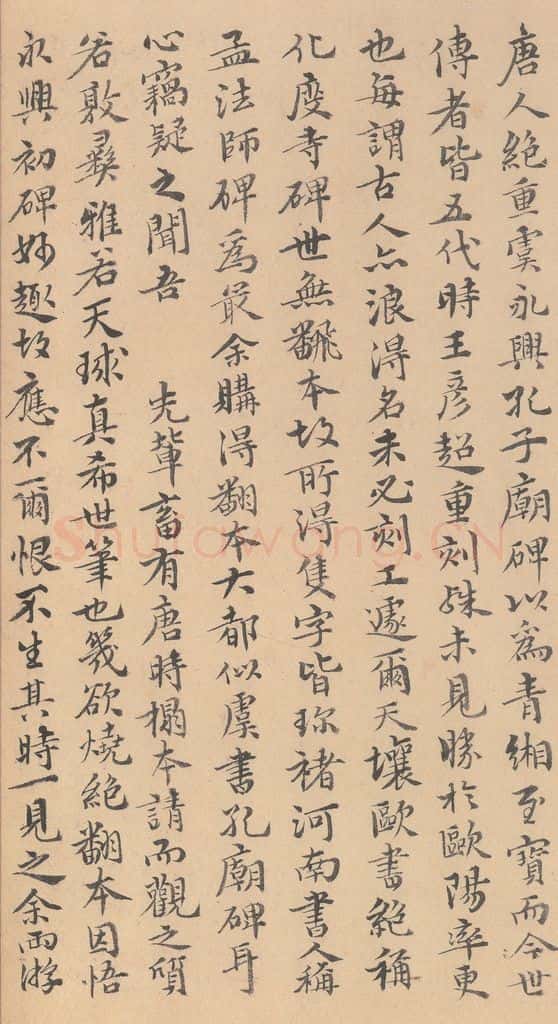 唐人絶重虞永興孔子廟碑以爲青緗至寶而今世
傳者皆五代時王彦超重刻殊未見勝於歐陽率更
也每謂古人亦浪得名未必刻工遽爾天壤歐書絶稱
化度寺碑世無飜本故所得隻字皆珎褚河南書人稱
孟法師碑爲最余購得翻本大都似虞書孔廟碑耳
心竊疑之聞吾 先輩畜有唐時搨本請而觀之質
若敦彛雅若天球真希世筆也幾欲燒絶翻本因悟
永興初碑妙趣故應不爾恨不生其時一見之余雨游
Shufawang.CN